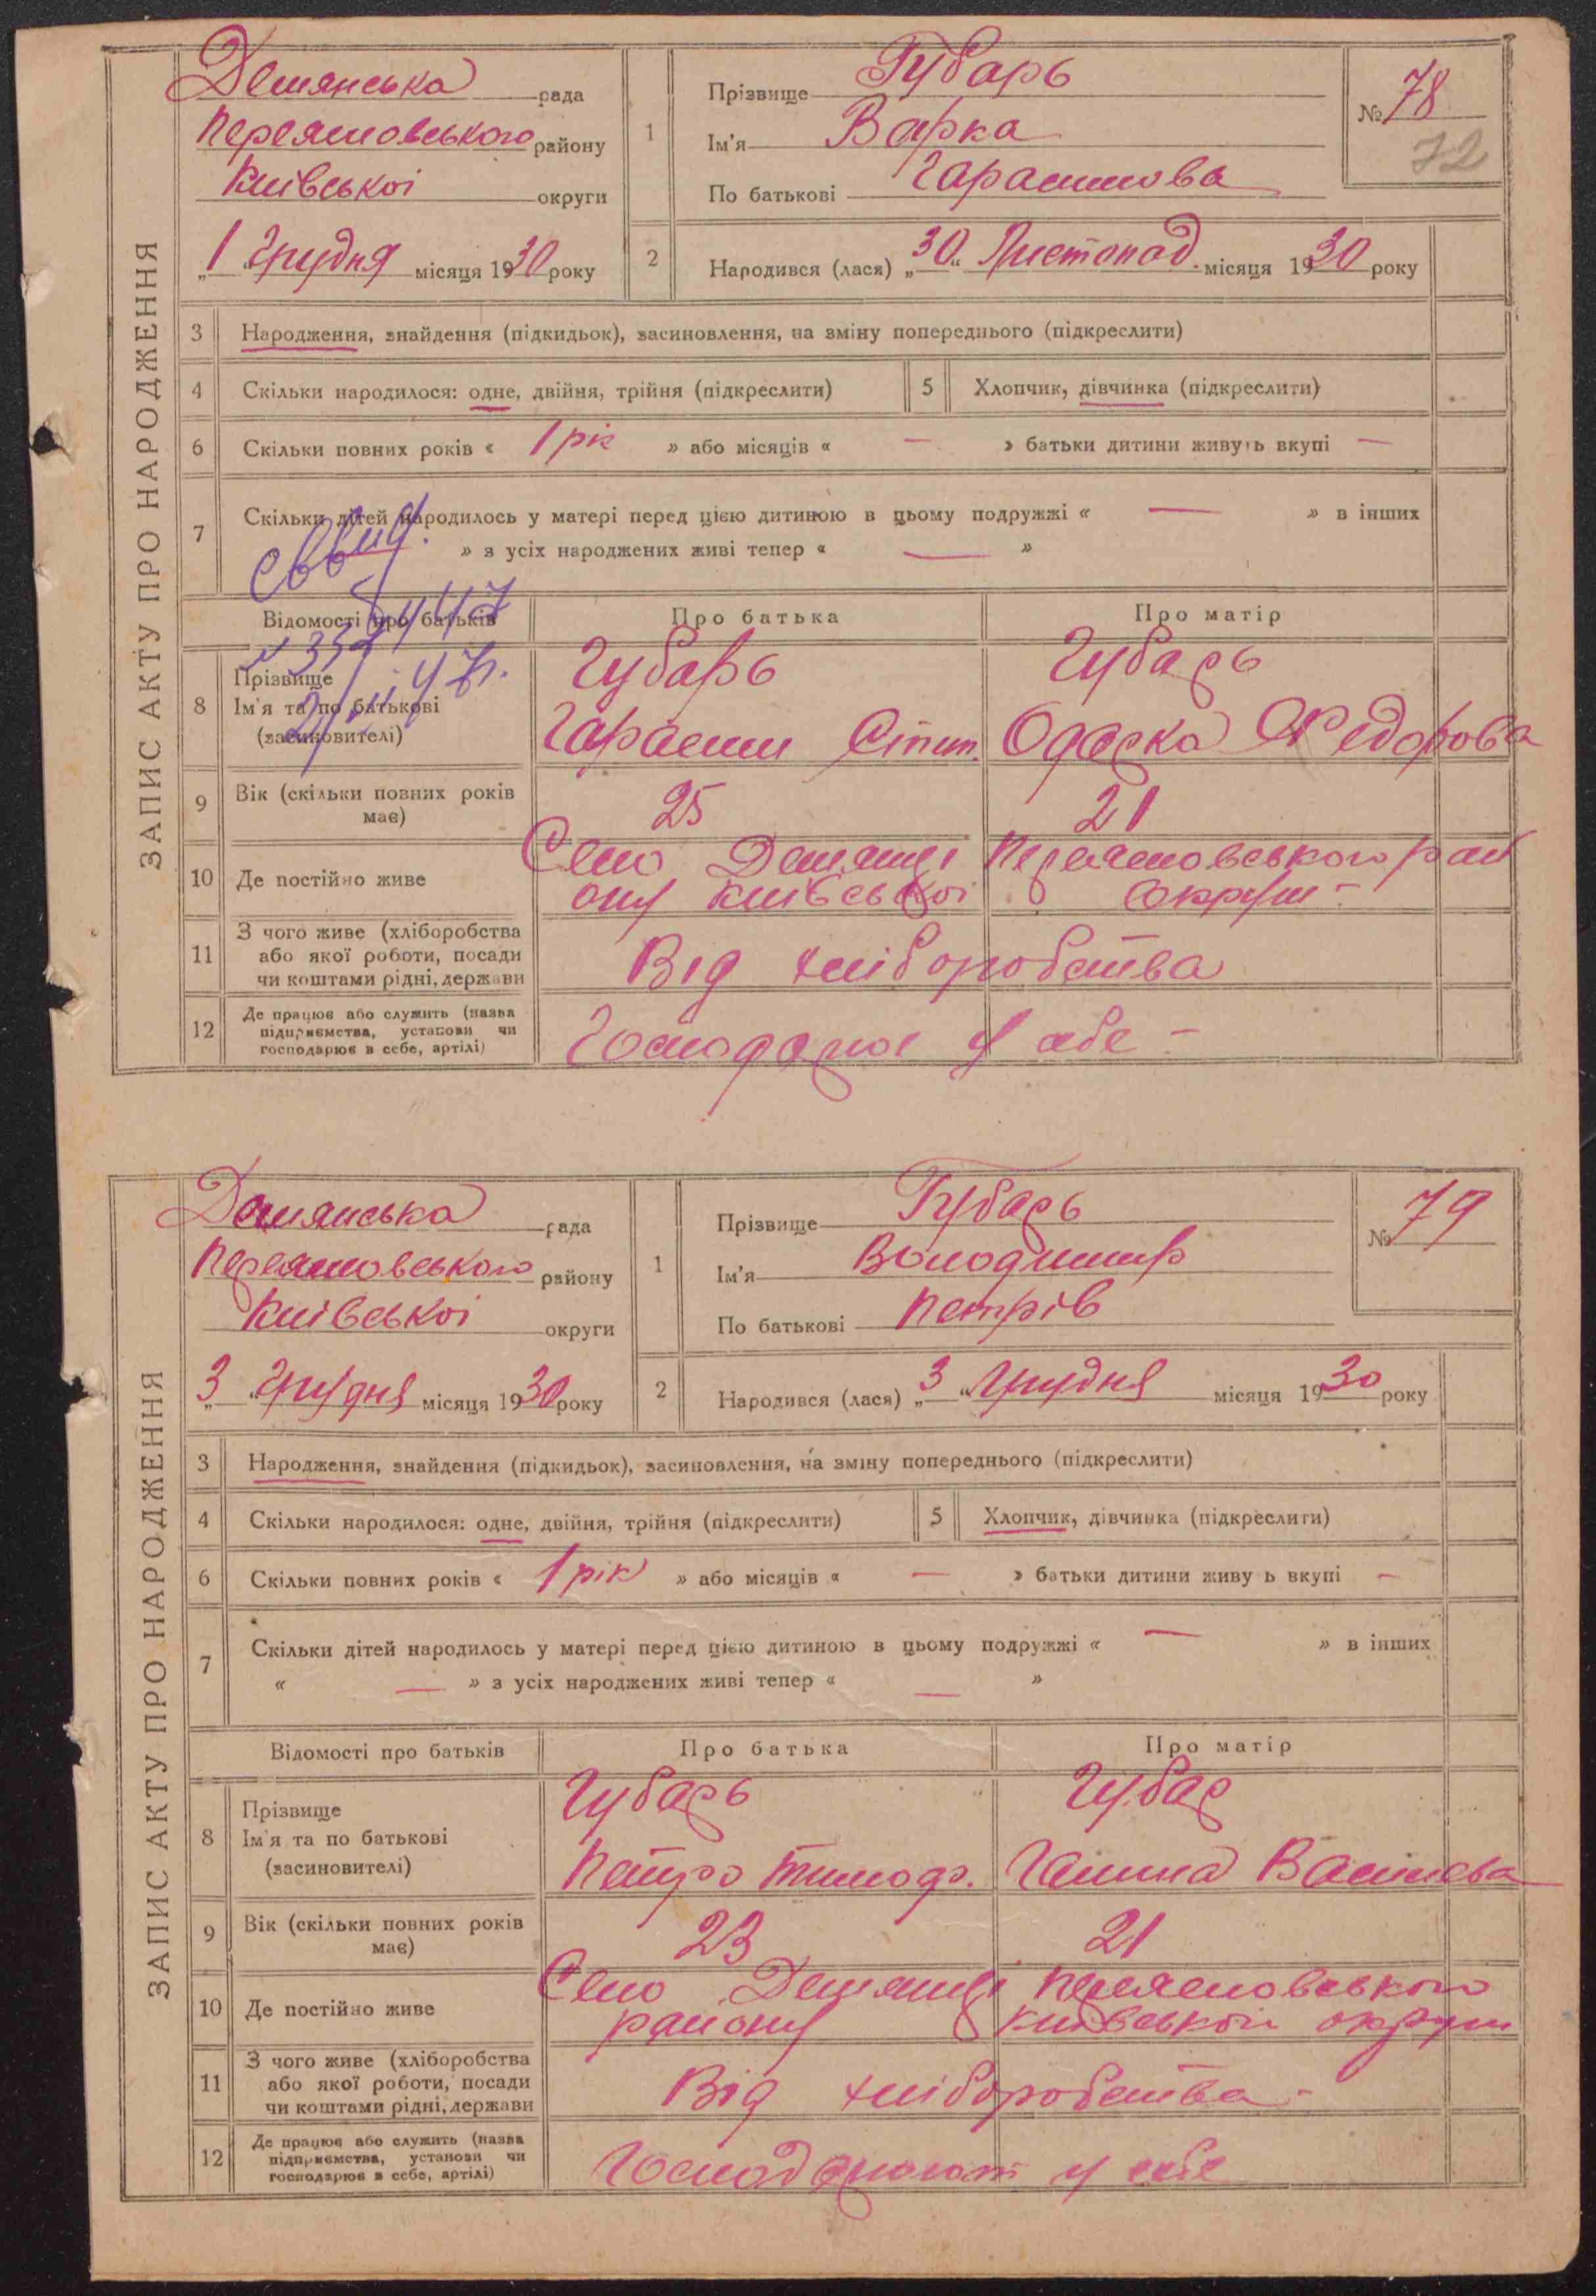 ЗАПИС АКТУ ПРО НАРОДЖЕННЯ
Демянська рада
Переяловського району
Київської округи
„1“ Грудня місяця 1930 року
1
Прізвище Губарь
Ім'я Варка
По батькові Гарасимова
№ 78
72
2
Народився (лася) „30“ Листопад. місяця 1930 року
3 Народження, знайдення (підкидьок), засиновлення, на зміну попереднього (підкреслити)
4 Скільки народилося: одне, двійня, трійня (підкреслити)
5 Хлопчик, дівчинка (підкреслити)
6 Скільки повних років « 1 рік » або місяців « — » батьки дитини живуть вкупі —
7 Скільки дітей народилось у матері перед цією дитиною в цьому подружжі « — » в інших
» з усіх народжених живі тепер « — »
Відомості про батьків Про батька Про матір
8 Прізвище Губарь Губарь
Ім'я та по батькові Гарасим Степ. Одарка Федорова
(засиновителі)
9 Вік (скільки повних років має) 25 21
10 Де постійно живе Село Демянці Переяловського рай
ону Київської округи -
11 З чого живе (хліборобства
або якої роботи, посади
чи коштами рідні, держави
Від хліборобства
12 Де працює або служить (назва
підприємства, установи чи
господарює в себе, артілі)
Господарює у себе -
ЗАПИС АКТУ ПРО НАРОДЖЕННЯ
Демянська рада
Переяловського району
Київської округи
„3“ Грудня місяця 1930 року
1
Прізвище Губарь
Ім'я Володимир
По батькові Петрів
№ 79
2
Народився (лася) „3“ Грудня місяця 1930 року
3 Народження, знайдення (підкидьок), засиновлення, на зміну попереднього (підкреслити)
4 Скільки народилося: одне, двійня, трійня (підкреслити)
5 Хлопчик, дівчинка (підкреслити)
6 Скільки повних років « 1 рік » або місяців « — » батьки дитини живу ь вкупі —
7 Скільки дітей народилось у матері перед цією дитиною в цьому подружжі « — » в інших
« — » з усіх народжених живі тепер « — »
Відомості про батьків Про батька Про матір
8 Прізвище Губарь Губар
Ім'я та по батькові Петро Тимоф. Ганна Василева
(засиновителі)
9 Вік (скільки повних років має) 23 21
10 Де постійно живе Село Демянці Переяловського
району Київської округи
11 З чого живе (хліборобства
або якої роботи, посади
чи коштами рідні, держави
Від хліборобства -
12 Де працює або служить (назва
підприємства, установи чи
господарює в себе, артілі)
Господарюют у себе